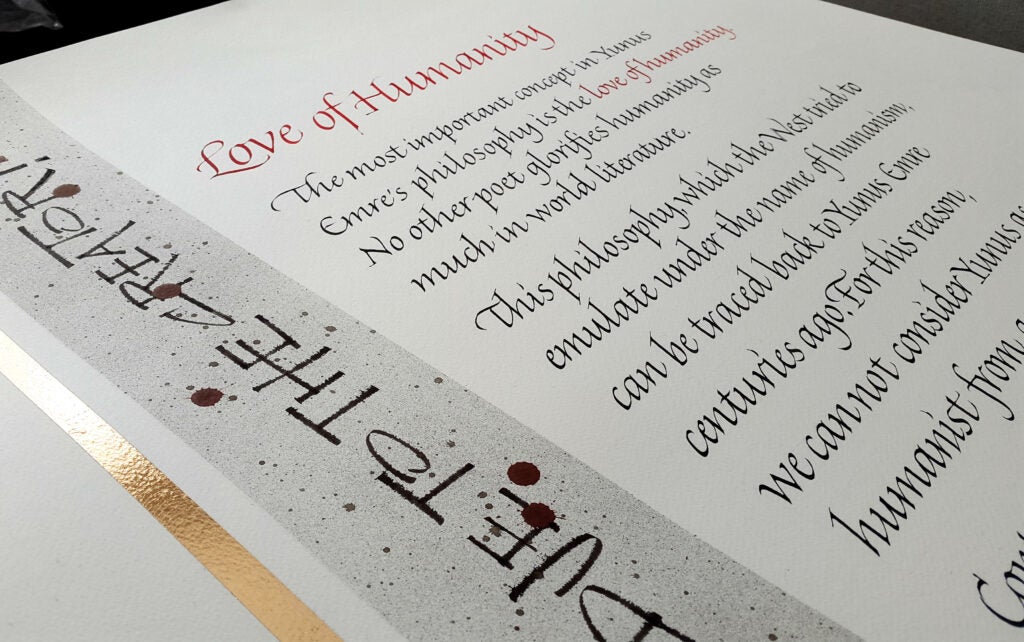 Love of Humanity
The most important concept in Yunus
Emre's philosophy is the love of humanity
No other poet glorifies humanity as
much in world literature.
This philosophy which the West tried to
emulate under the name of humanism,
can be traced back to Yunus Emre
centuries ago. For this reason,
we cannot consider Yunus as
humanist from a
TO THE CREATOR!